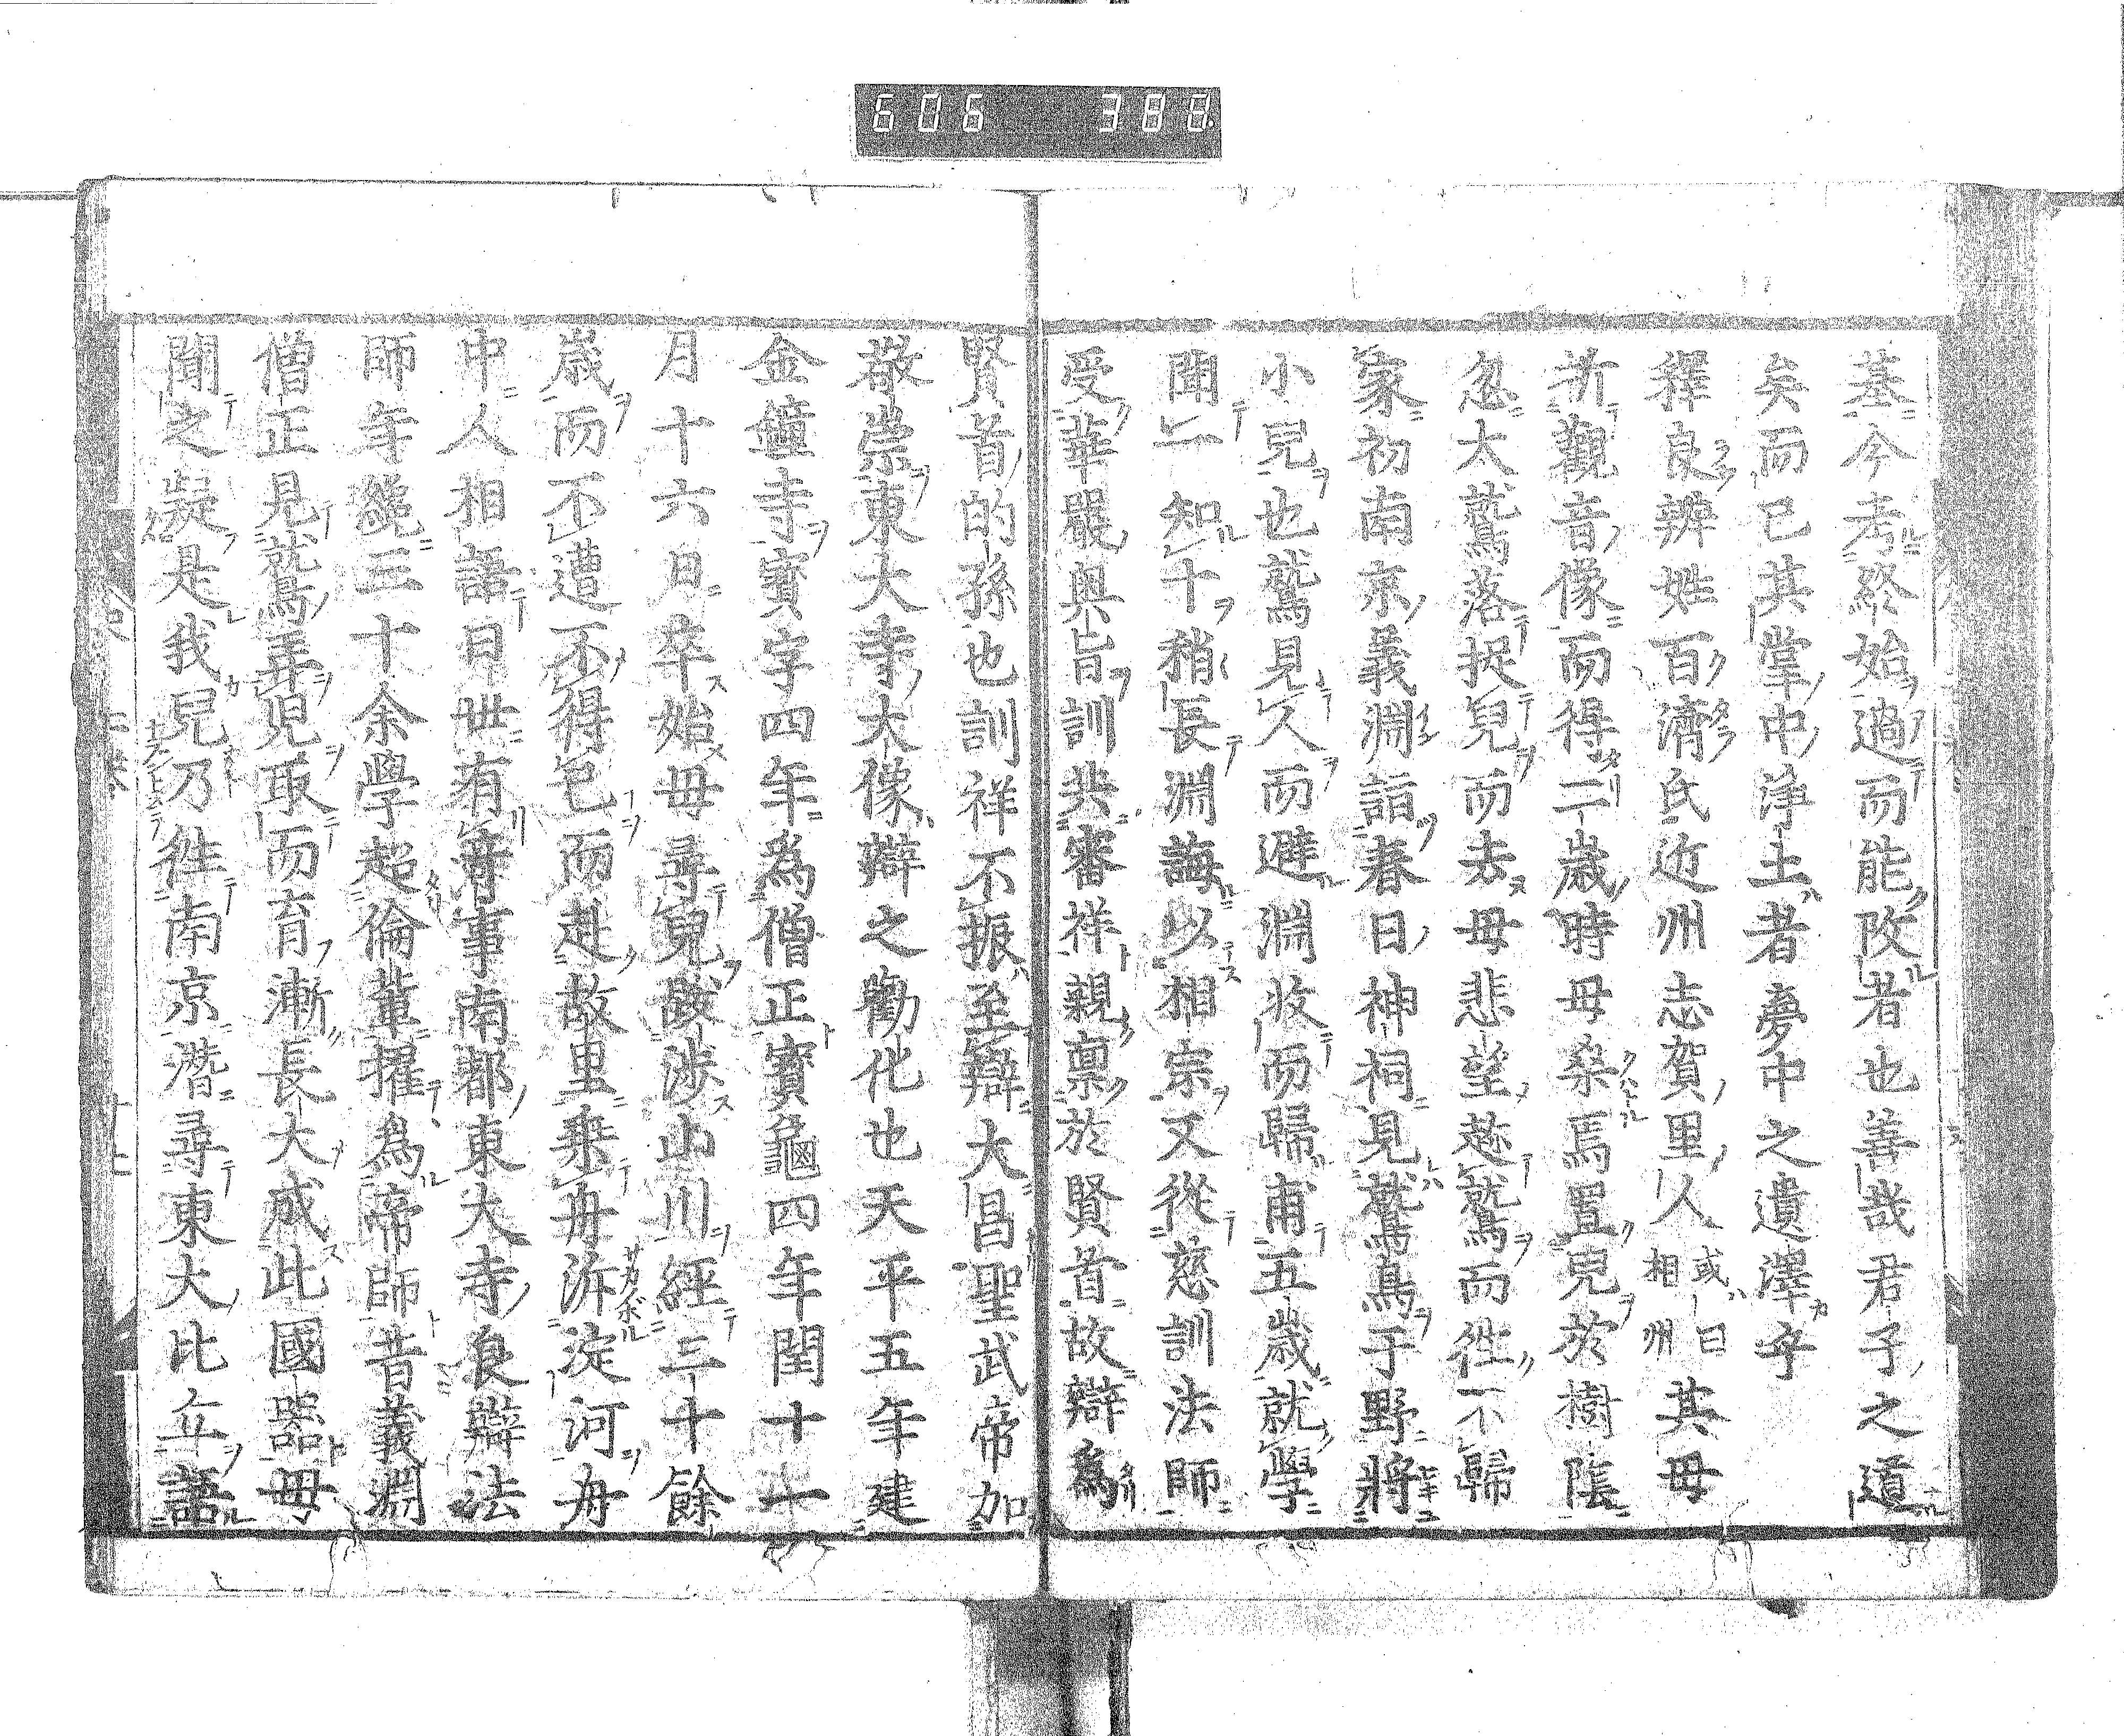 606 380
墓今考終始過而能改者也善哉君子之道
矣而已其掌中淨土者夢中之遺澤乎
釋良辨姓百濟氏近州志賀里人或曰相州其母
祈觀音像而得二歲時母桑焉置兒於樹蔭
忽大鷲落捉兒而去母悲望趂鷲而徃不歸
家初南京義淵詣春日神祠見鷲鳥于野將
小兒也鷲見人而避淵收而歸甫五歲就學
聞一知十稍長淵誨以相宗又從慈訓法師
受華嚴奥旨訓共審祥親禀於賢首故辯爲
賢首的孫也訓祥不振至辯大昌聖武帝加
敬崇東大寺大像辯之勸化也天平五年建
金鐘寺寳字四年爲僧正寳龜四年閏十一
月十六日卒始母尋兒跋涉山川經三十餘
歲而不遭不得已而赴故里乗舟泝淀河舟
中人相語曰世有竒事南都東大寺良辯法
師年纔三十余學超倫輩擢爲帝師昔義淵
僧正見鷲弄兒取而育漸長大成此國器母
聞之疑是我兒乃徃南京潛尋東大比丘語